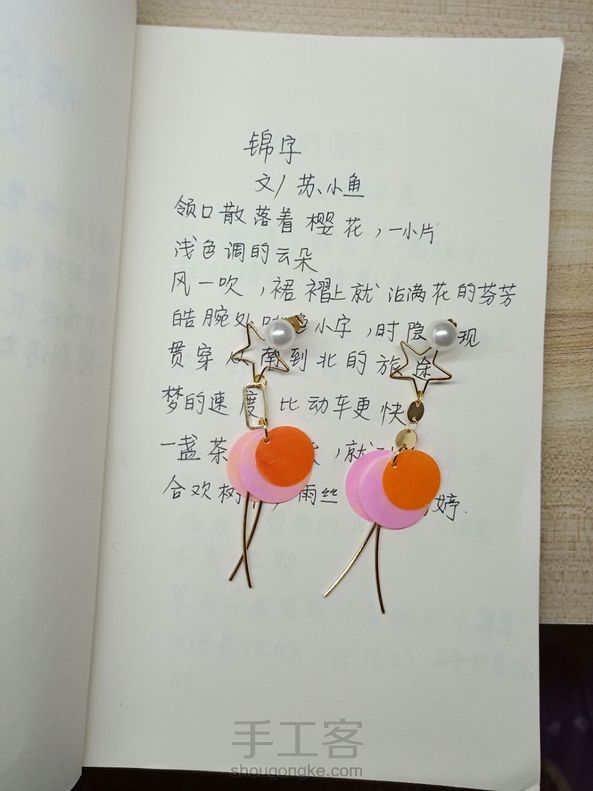 锦字
文/苏小鱼
领口散落着樱花，一小片
浅色调的云朵
风一吹，裙褶上就沾满花的芬芳
皓腕处 小字，时隐 现
贯穿 南到北的旅途
梦的速度 比动车更快
一盏茶 ，就
合欢树 ，雨丝 婷.
手工客
shougongke.com